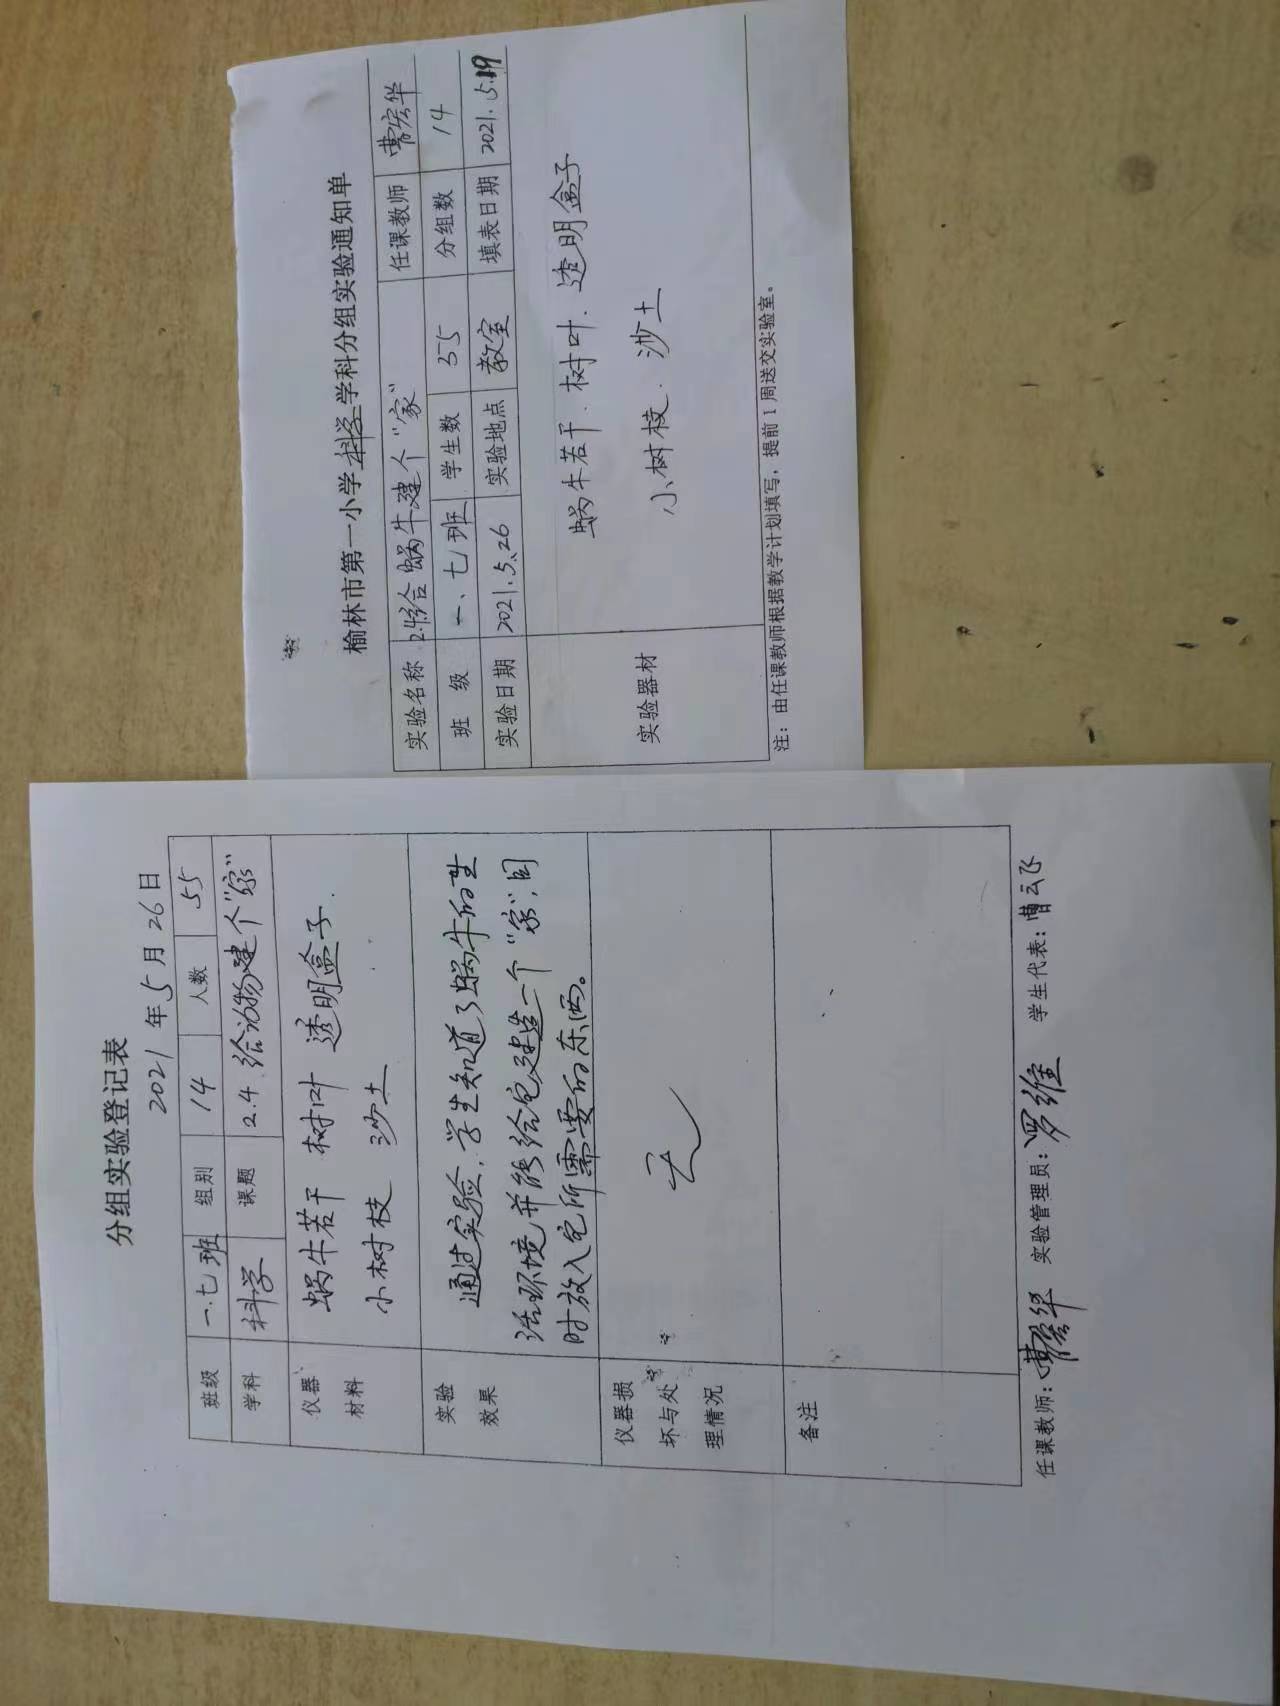 分组实验登记表
2021年5月26日
班级 一.七班 组别 14 人数 55
学科 科学 课题 2.4.给动物建个"家"
仪器材料 蜗牛若干 树叶 透明盒子.
小树枝 沙土
实验效果 通过实验,学生知道了蜗牛的生
活环境并能给它建造一个"家",同
时放入它所需要的东西。
仪器损坏与处理情况 无
备注
任课教师:曹宏华 实验管理员:罗维 学生代表:曹云飞
榆林市第一小学科学学科分组实验通知单
实验名称 2.4给蜗牛建个"家" 任课教师 曹宏华
班 级 一、七班 学生数 55 分组数 14
实验日期 2021.5.26 实验地点 教室 填表日期 2021.5.19
实验器材 蜗牛若干.树叶.透明盒子
小树枝.沙土
注:由任课教师根据教学计划填写,提前1周送交实验室。